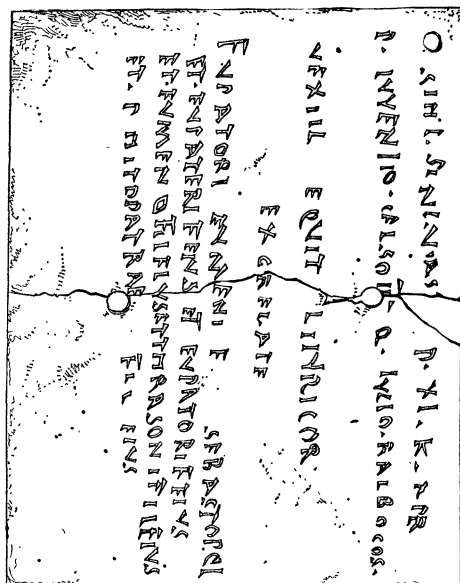 A · XI · K · APR
P · IVVENTIO · CELSO · II · Q · IVLIO · BALBO COS ·
VEXILL EQVIT ILLYRICOR
EX GREGALE
EVPATORI EVMENI F SEBASTOPOL
ET EVPATERI F EIVS ET EVPATORI F EIVS
ET EVMENO F EIVS ET THRASONI F EIVS
ET PHILOPATRAE FIL EIVS